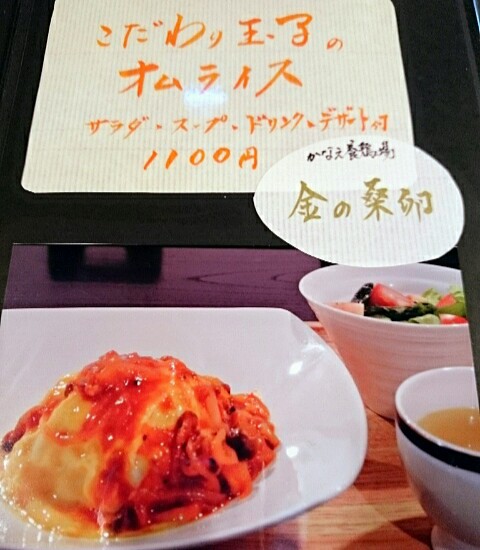 こだわり玉子の
オムライス
サラダ・スープ・ドリンク・デザート付
1100円
かなえ養鶏場
金の桑卵